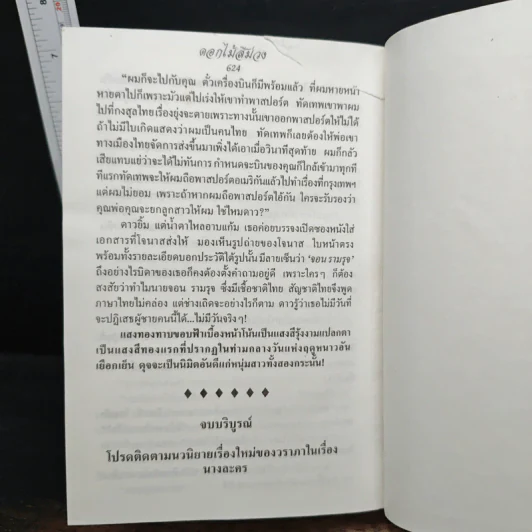 ดอกไม้สีม่วง
624
“ผมก็จะไปกับคุณ ตั๋วเครื่องบินก็มีพร้อมแล้ว ที่ผมหายหน้า
หายตาไปก็เพราะมัวแต่ไปเร่งให้เขาทำพาสปอร์ต ทัดเทพเขาพาผม
ไปที่กงสุลไทยเรื่องยุ่งจะตายเพราะทางนั้นเขาออกพาสปอร์ตให้ไม่ได้
ถ้าไม่มีใบเกิดแสดงว่าผมเป็นคนไทย ทัดเทพก็เลยต้องให้พ่อเขา
ทางเมืองไทยจัดการส่งขึ้นมาเพิ่งได้เอาเมื่อวินาทีสุดท้าย ผมก็กลัว
เสียแทบแย่ว่าจะได้ไม่ทันการ กำหนดจะบินของคุณก็ใกล้เข้ามาทุกที
ทีแรกทัดเทพจะให้ผมถือพาสปอร์ตอเมริกันแล้วไปทำเรื่องที่กรุงเทพฯ
แต่ผมไม่ยอม เพราะถ้าหากผมถือพาสปอร์ตไอ้กัน ใครจะรับรองว่า
คุณพ่อคุณจะยกลูกสาวให้ผม ใช่ไหมดาว?”
ดาวยิ้ม แต่น้ำตาไหลอาบแก้ม เธอค่อยบรรจงเปิดซองหนังใส่
เอกสารที่โจนาสส่งให้ มองเห็นรูปถ่ายของโจนาส ในหน้าตรง
พร้อมทั้งรายละเอียดบอกประวัติใต้รูปนั้น มีลายเซ็นว่า ‘จอน รามรุจ’
ถึงอย่างไรบิดาของเธอก็คงต้องตั้งคำถามอยู่ดี เพราะใครๆ ก็ต้อง
สงสัยว่าทำไมนายจอน รามรุจ ซึ่งมีเชื้อชาติไทย สัญชาติไทยจึงพูด
ภาษาไทยไม่คล่อง แต่ช่างเถิดจะอย่างไรก็ตาม ดาวรู้ว่าเธอไม่มีวันที่
จะปฏิเสธผู้ชายคนนี้ได้...ไม่มีวันจริงๆ!
แสงทองทาบขอบฟ้าเบื้องหน้าโน้นเป็นแสงสีรุ้งงามแปลกตา
เป็นแสงสีทองแรกที่ปรากฏในท่ามกลางวันแห่งฤดูหนาวอัน
เยือกเย็น ดุจจะเป็นนิมิตอันดีแก่หนุ่มสาวทั้งสองกระนั้น!
จบบริบูรณ์
โปรดติดตามนวนิยายเรื่องใหม่ของวราภาในเรื่อง
นางละคร